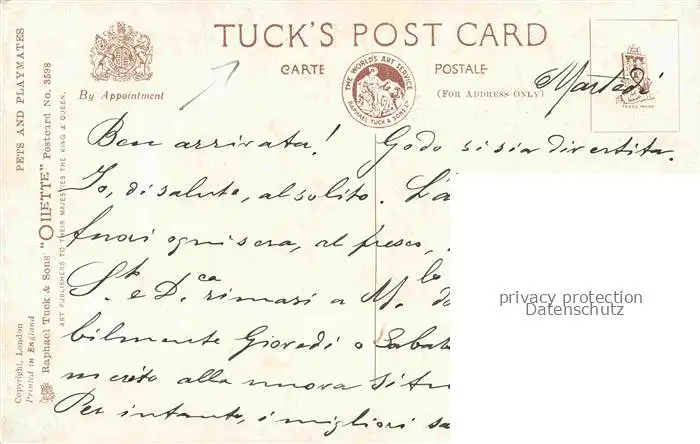 TUCK'S POST CARD
CARTE POSTALE
(FOR ADDRESS ONLY)
By Appointment
THE WORLD'S ART SERVICE
RAPHAEL TUCK & SONS LD
TRADE MARK
PETS AND PLAYMATES
Raphael Tuck & Sons' "OILETTE" Postcard No. 3598
ART PUBLISHERS TO THEIR MAJESTIES THE KING & QUEEN.
Copyright, London
Printed in England
Martedì
Ben arrivata! Godo si sia divertita.
Io, di salute, al solito. La
fuori ogni sera, al fresco,
Sto e Dca rimasi a M.lo do
bilmente Giovedì o Sabat
merito alla nuova situ
Per intanto, i migliori sa
privacy protection
Datenschutz